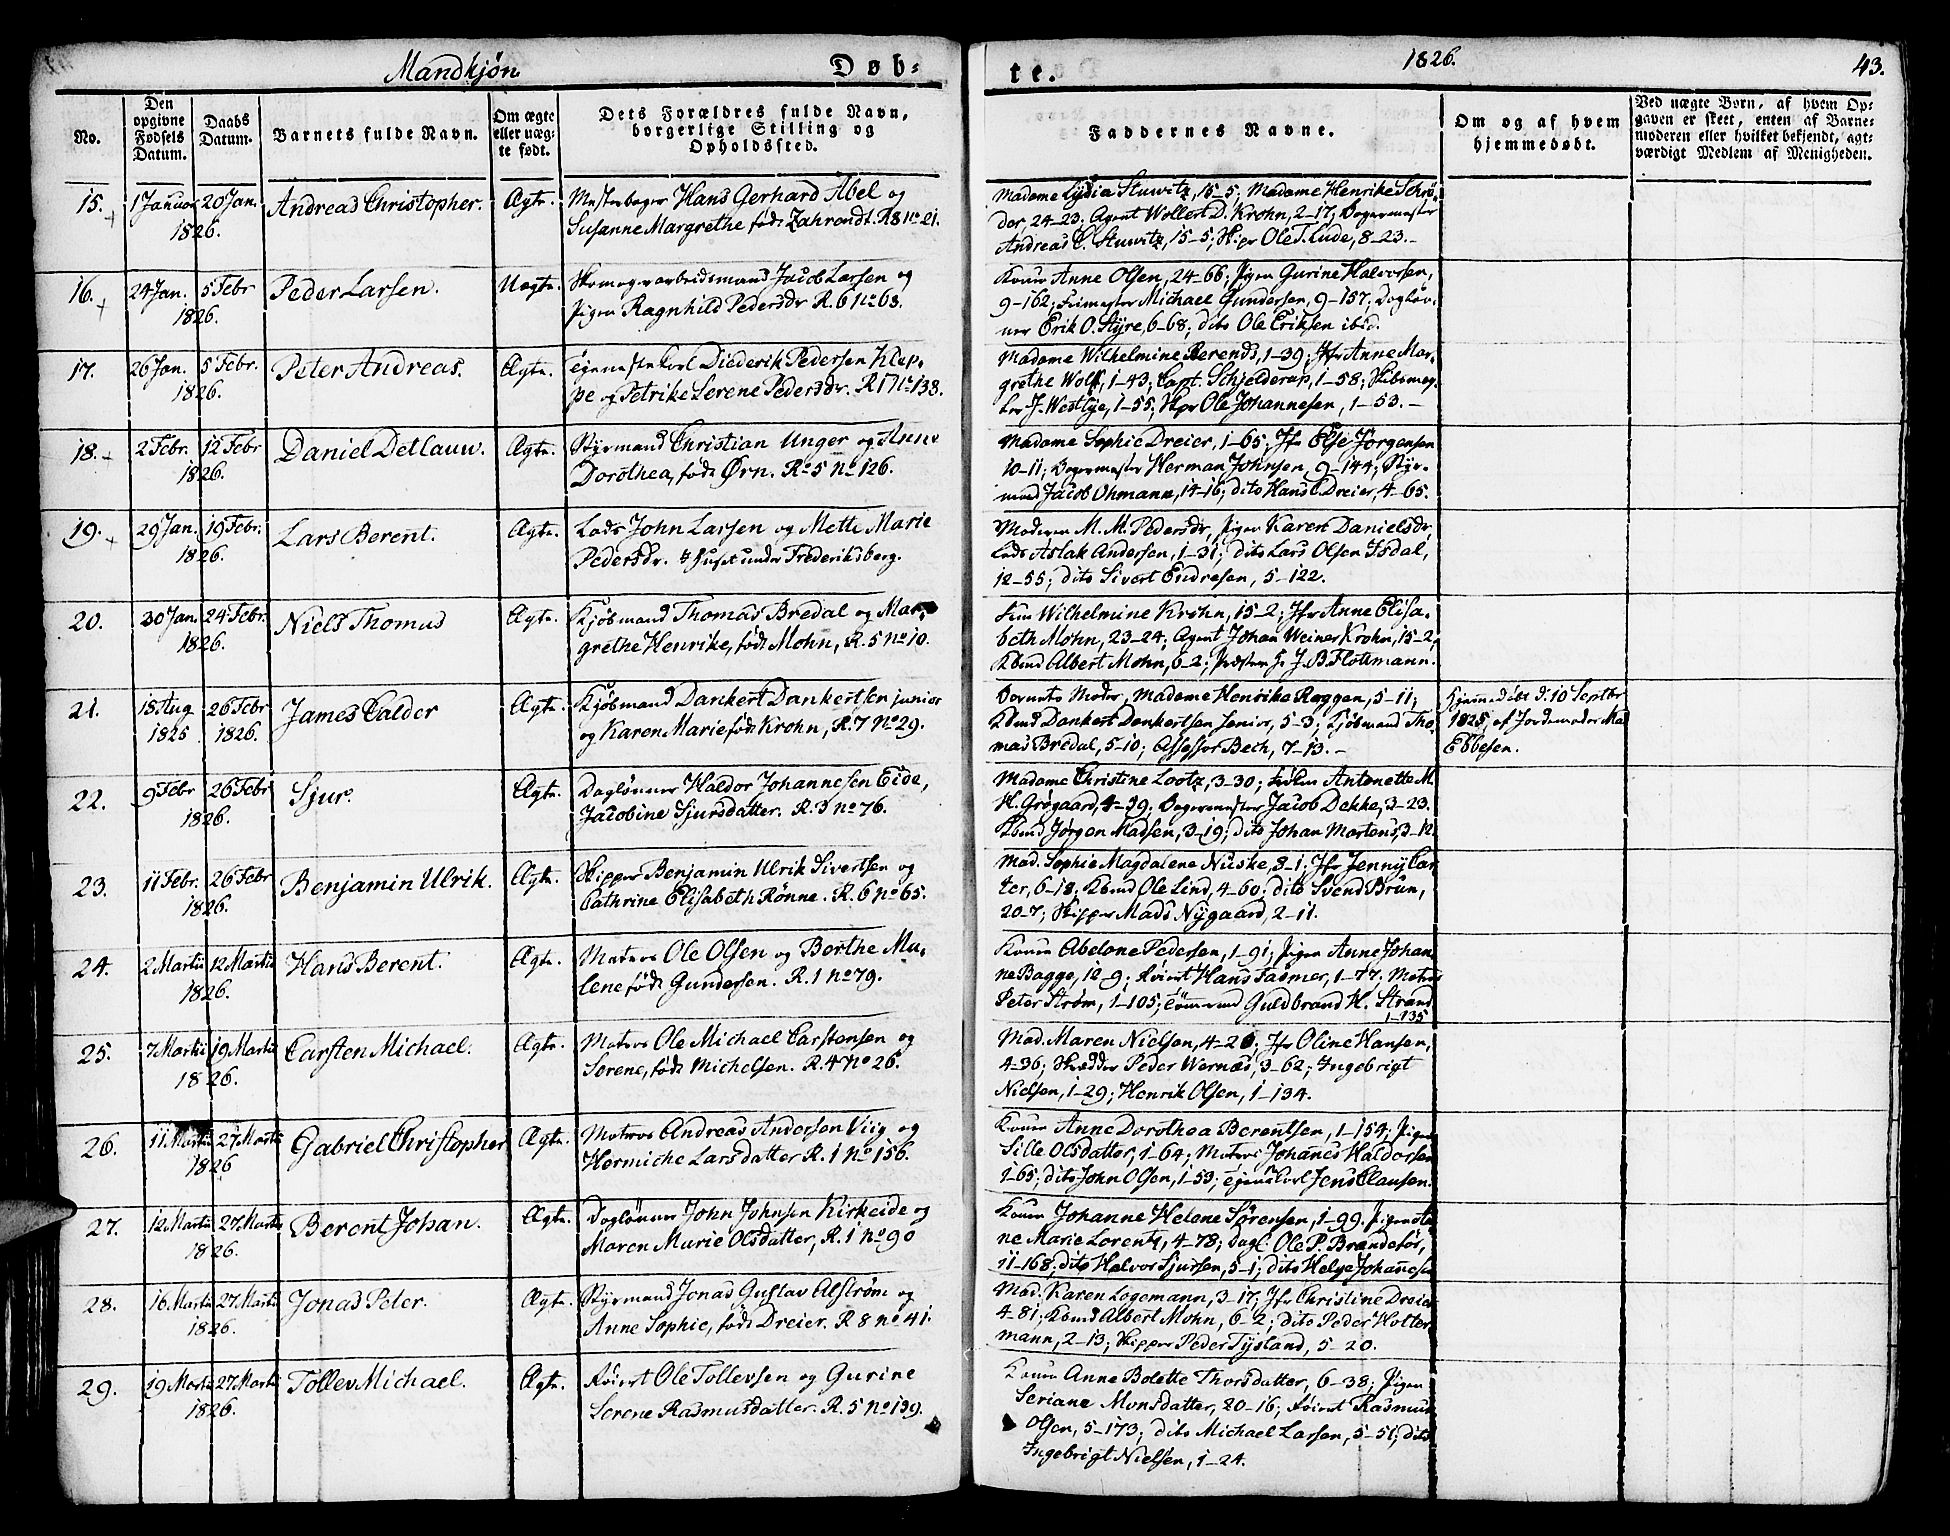 Mandkjøn
Døb-
te.
1826.
43.
No.
Den opgivne Fødsels Datum.
Daabs Datum.
Barnets fulde Navn.
Om ægte eller uægte født.
Dets Forældres fulde Navn, borgerlige Stilling og Opholdssted.
Faddernes Navne.
Om og af hvem hjemmedøbt.
Ved uægte Børn, af hvem Opgaven er skeet, enten af Barnemoderen eller hvilket bekjendt, agtværdigt Medlem af Menigheden.
15. 1 Januar 20 Jan. 1826. Andreas Christopher. Ægte.
Mesterbager Hans Gerhard Abel og
Susanne Margrethe født Zahrendt. R8 No 21.
Madame Lydia Stuwitz, 15-5; Madame Henrike Schrø-
der 24-23. Agent Wollert D. Krohn, 2-17; Bagermester
Andreas C. Stuwitz, 15-5; Skipr Ole T. Lude, 8-23.-
16. 24 Jan. 5 Febr 1826. Peder Larsen. Uægte.
Skomagerarbeidsmand Jacob Larsen og
Pigen Ragnhild Pedersdr R. 6 No 68.
Konen Anne Olsen, 24-66; Pigen Gurine Halvorsen,
9-162; Feiemester Michael Gundersen, 9-157; Dagløn-
ner Erik O. Styre, 6-68; dito Ole Eriksen ibid.
17. 26 Jan. 5 Febr. 1826. Peter Andreas. Ægte.
Tjenestekarl Diederik Pedersen Klep-
pe og Petrike Serene Pedersdr. R 17 No 138.
Madame Wilhelmine Berends, 1-39; Jfr Anne Mar-
grethe Wolff, 1-43; Capt. Schjelderup, 1-58; Skibsmæg-
ler J. Westlye, 1-55; Skpr Ole Johannesen, 1-53.-
18. 2 Febr. 12 Febr 1826. Daniel Detlauw. Ægte.
Styrmand Christian Unger og Anne
Dorothea, født Ørn. R 5 No 126.
Madame Sophie Dreier, 1-65; Jfr Else Jørgensen
10-11; Bagermester Herman Johnsen, 9-144; Styr-
mand Jacob Ohmann, 14-16; dito Hans C. Dreier, 4-65.
19. 29 Jan. 19 Febr. 1826. Lars Berent. Ægte.
Lods John Larsen og Mette Marie
Pedersdr. et Huset under Frederiksberg.
Moderen M. M. Pedersdr, Pigen Karen Danielsdr,
Lods Aslak Andersen, 1-31; dito Lars Olsen Isdal,
12-55; dito Sivert Endresen, 5-122.
20. 30 Jan. 24 Febr. 1826. Niels Thomas Ægte.
Kjøbmand Thomas Bredal og Mar-
grethe Henrike, født Mohn, R. 5 No 10.
Frue Wilhelmine Krohn, 15-2; Jfr Anne Elisa-
beth Mohn, 23-24; Agent Johan Weiner Krohn, 15-2,
Kbmd Albert Mohn, 6-2; Præsten J. B. Flottmann.
21. 18 Aug 1825 26 Febr 1826. James Calder Ægte.
Kjøbmand Dankert Dankertsen junior
og Karen Marie født Krohn, R. 7 No 29.
Barnets Moder, Madame Henrike Roggen, 5-11;
Kbmd Dankert Dankertsen Senior, 5-3; Kjøbmand Tho-
mas Bredal, 5-10; Assessor Bech, 7-13.-
Hjemmedøbt d. 10 Septbr
1825, af Jordemoder Ma
Ebbesen.
22. 9 Febr 26 Febr 1826. Sjur. Ægte.
Daglønner Haldor Johannesen Eide,
Jacobine Sjursdatter. R. 3 No 76.
Madame Christine Lootz, 3-30; Frøken Antonette M.
H. Grøgaard, 4-39. Bagermester Jacob Dekke, 3-23.
Kbmd Jørgen Madsen, 3-19; dito Johan Martens, 3-12.
23. 11 Febr. 26 Febr 1826. Benjamin Ulrik. Ægte.
Skipper Benjamin Ulrik Sivertsen og
Cathrine Elisabeth Rønne. R. 6 No 65.
Mad. Sophie Magdalene Nüske, 8-1; Jfr Jenny Car-
ter, 6-18; Kbmd Ole Lind, 4-60; dito Svend Brun,
20-7; Skipper Mads Nygaard, 2-11.
24. 2 Martii 12 Martii 1826. Hans Berent. Ægte.
Matros Ole Olsen og Berthe Ma-
lene født Gundersen. R. 1 No 79.
Konen Abelone Pedersen, 1-91; Pigen Anne Johan-
ne Bagge, 12-9; Avint Hans Fasmer, 1-77; Matros
Peter Strøm, 1-105; Tømmermd Guldbrand H. Strand
1-135
25. 7 Martii 19 Martii 1826. Carsten Michael. Ægte.
Matros Ole Michael Carstensen og
Serene, født Michelsen. R. 4 No 26.
Mad. Maren Nielsen, 4-26; Jfr Oline Hansen,
4-36; Skrædder Peder Wernæs, 3-62; Ingebrigt
Nielsen, 1-29; Henrik Olsen, 1-134.
26. 11 Martii 27 Martii 1826 Gabriel Christopher Ægte.
Matros Andreas Andersen Viig og
Hermiche Larsdatter R. 1 No 156.
Konen Anne Dorothea Berentsen, 1-154; Pigen
Sille Olsdatter, 1-64; Matros Johanes Haldorsen
1-65; dito John Olsen, 1-53; Tjenstkarl Jens Clausen.
27. 12 Martii 27 Martii 1826. Berent Johan. Ægte.
Daglønner John Johnsen Kirkeide og
Maren Marie Olsdatter, R. 1 No 90
Konen Johanne Helene Sørensen, 1-99. Pigen
ne Marie Lorentz, 4-78; Dagl. Ole P. Brandsfør,
11-168; dito Halvor Sjursen, 5-1; dito Helge Johannesen
28. 16 Martii 27 Martii 1826. Jonas Peter. Ægte.
Styrmand Jonas Gustav Alstrøm og
Anne Sophie, født Dreier. R 8 No 41.
Mad. Karen Logemann, 3-17; Jfr Christine Dreier
4-81; Kbmd Albert Mohn, 6-2; dito Peder Holter-
mann, 2-13; Skipper Peder Tysland, 5-20.
29. 19 Martii 27 Martii 1826. Tollev Michael. Ægte.
Avint Ole Tollevsen og Gurine
Serene Rasmusdatter. R. 5 No 139.
Konen Anne Bolette Thorsdatter, 6-38; Pigen
Seriane Monsdatter, 20-16; Avint Rasmus
Olsen, 5-173; dito Michael Larsen, 5-51; dito
Ingebrigt Nielsen, 1-24.